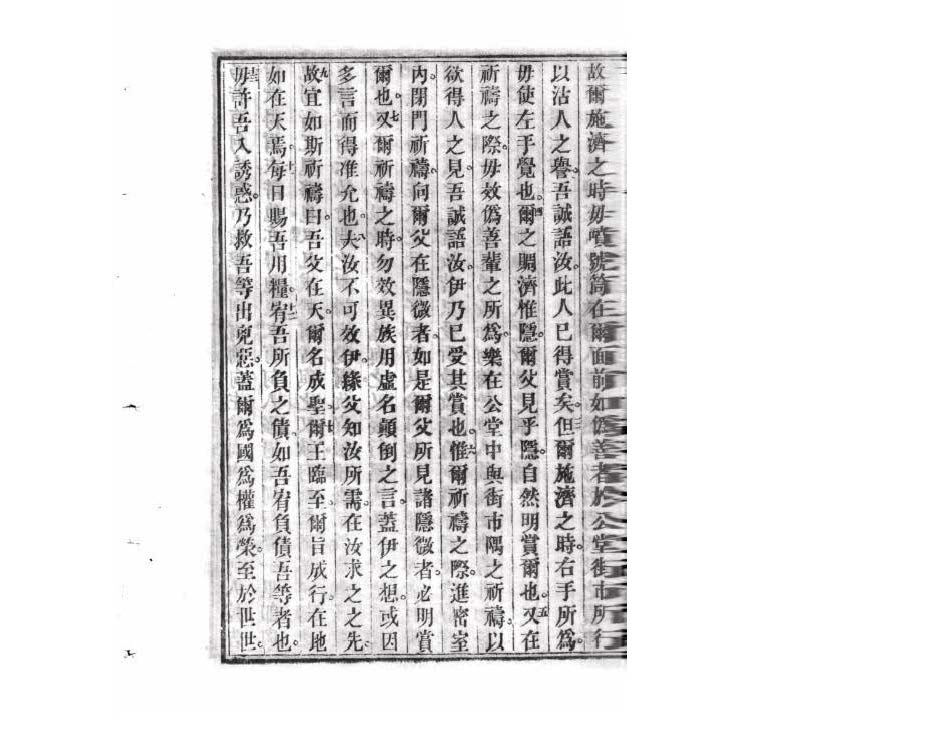 故爾施濟之時毋噴號筒在爾面前如偽善者於公堂街市所行
以沽人之譽。吾誠語汝。此人已得賞矣。三但爾施濟之時。右手所為。
毋使左手覺也。四爾之賙濟惟隱。爾父見乎隱。自然明賞爾也。五又在
祈禱之際。毋效偽善輩之所為。樂在公堂中與街市隅之祈禱。以
欲得人之見。吾誠語汝。伊乃已受其賞也。六惟爾祈禱之際。進密室
內。閉門祈禱。向爾父在隱微者。如是爾父所見諸隱微者。必明賞
爾也。七又爾祈禱之時。勿效異族用虛名顛倒之言。蓋伊之想。或因
多言而得准允也。八夫汝不可效伊。緣父知汝所需。在汝求之之先。
九故宜如斯祈禱曰。吾父在天。爾名成聖。十爾王臨至。爾旨成行。在地
如在天焉。十一每日賜吾用糧。十二宥吾所負之債。如吾宥負債吾等者也。
十三毋許吾入誘惑。乃救吾等出兇惡。蓋爾為國為權為榮。至於世世。